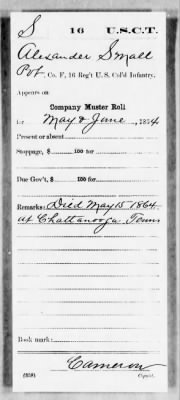 S 16 U.S.C.T.
Alexander Small
Pvt, Co. F, 16 Reg't U. S. Col'd Infantry.
Appears on
Company Muster Roll
for May & June, 1864.
Present or absent
Stoppage, $ 100 for
Due Gov't, $ 100 for
Remarks: Died May 15 1864
at Chattanooga Tenn
Book mark:
Cameron
(858) Copyist.